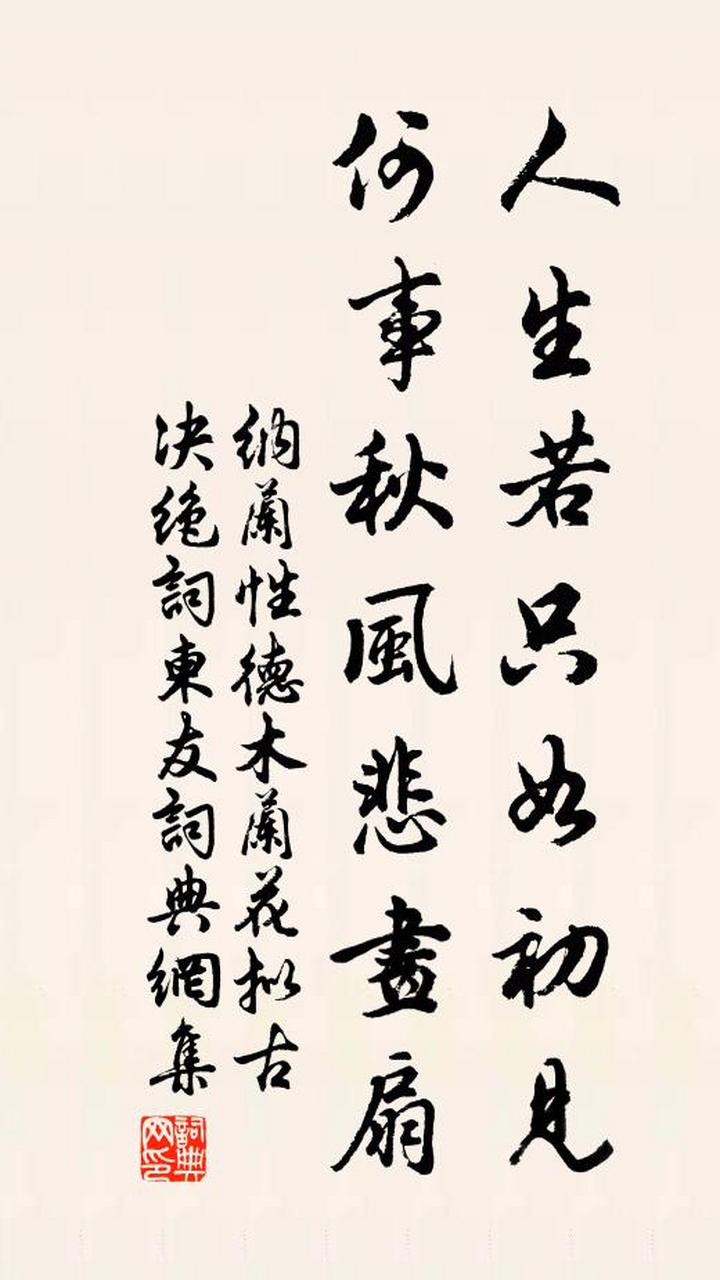 人生若只如初見
何事秋風悲畫扇
納蘭性德木蘭花拟古
决絶詞東友詞典網集
詞典
网印